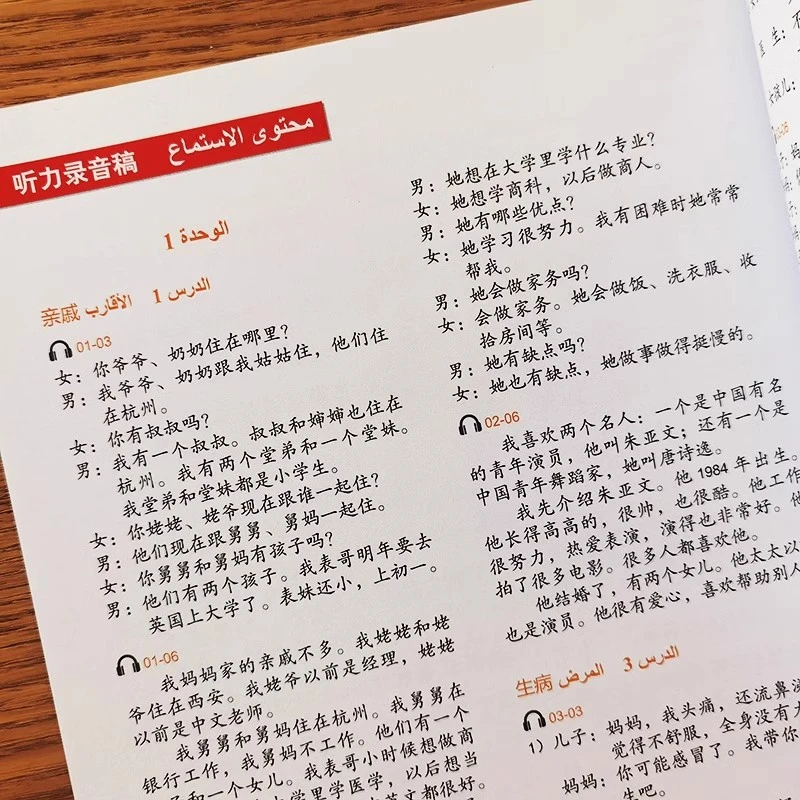 听力录音稿 محتوى الاستماع
الوحدة 1
亲戚 الأقارب الدرس 1
01-03
女：你爷爷、奶奶住在哪里？
男：我爷爷、奶奶跟我姑姑住，他们住
在杭州。
女：你有叔叔吗？
男：我有一个叔叔。叔叔和婶婶也住在
杭州。我有两个堂弟和一个堂妹。
我堂弟和堂妹都是小学生。
女：你姥姥、姥爷现在跟谁一起住？
男：他们现在跟舅舅、舅妈一起住。
女：你舅舅和舅妈有孩子吗？
男：他们有两个孩子。我表哥明年要去
英国上大学了。表妹还小，上初一。
01-06
我妈妈家的亲戚不多。我姥姥和姥
爷住在西安。我姥爷以前是经理，姥姥
以前是中文老师。
我舅舅和舅妈住在杭州。我舅舅在
银行工作，我舅妈不工作。他们有一个
和一个女儿。我表哥小时候想做商
学里学医学，以后想当
英文都很好。
男：她想在大学里学什么专业？
女：她想学商科，以后做商人。
男：她有哪些优点？
女：她学习很努力。我有困难时她常常
帮我。
男：她会做家务吗？
女：会做家务。她会做饭、洗衣服、收
拾房间等。
男：她有缺点吗？
女：她也有缺点，她做事做得挺慢的。
02-06
我喜欢两个名人：一个是中国有名
的青年演员，他叫朱亚文；还有一个是
中国青年舞蹈家，她叫唐诗逸。
我先介绍朱亚文。他 1984 年出生。
他长得高高的，很帅，也很酷。他工作
很努力，热爱表演，演得也非常好。他
拍了很多电影。很多人都喜欢他。
他结婚了，有两个女儿。他太太以
也是演员。他很有爱心，喜欢帮助别人
生病 المرض الدرس 3
03-03
1）儿子：妈妈，我头痛，还流鼻
觉得不舒服，全身没有
妈妈：你可能感冒了。我带你
生吧。
生：不
女孩儿：